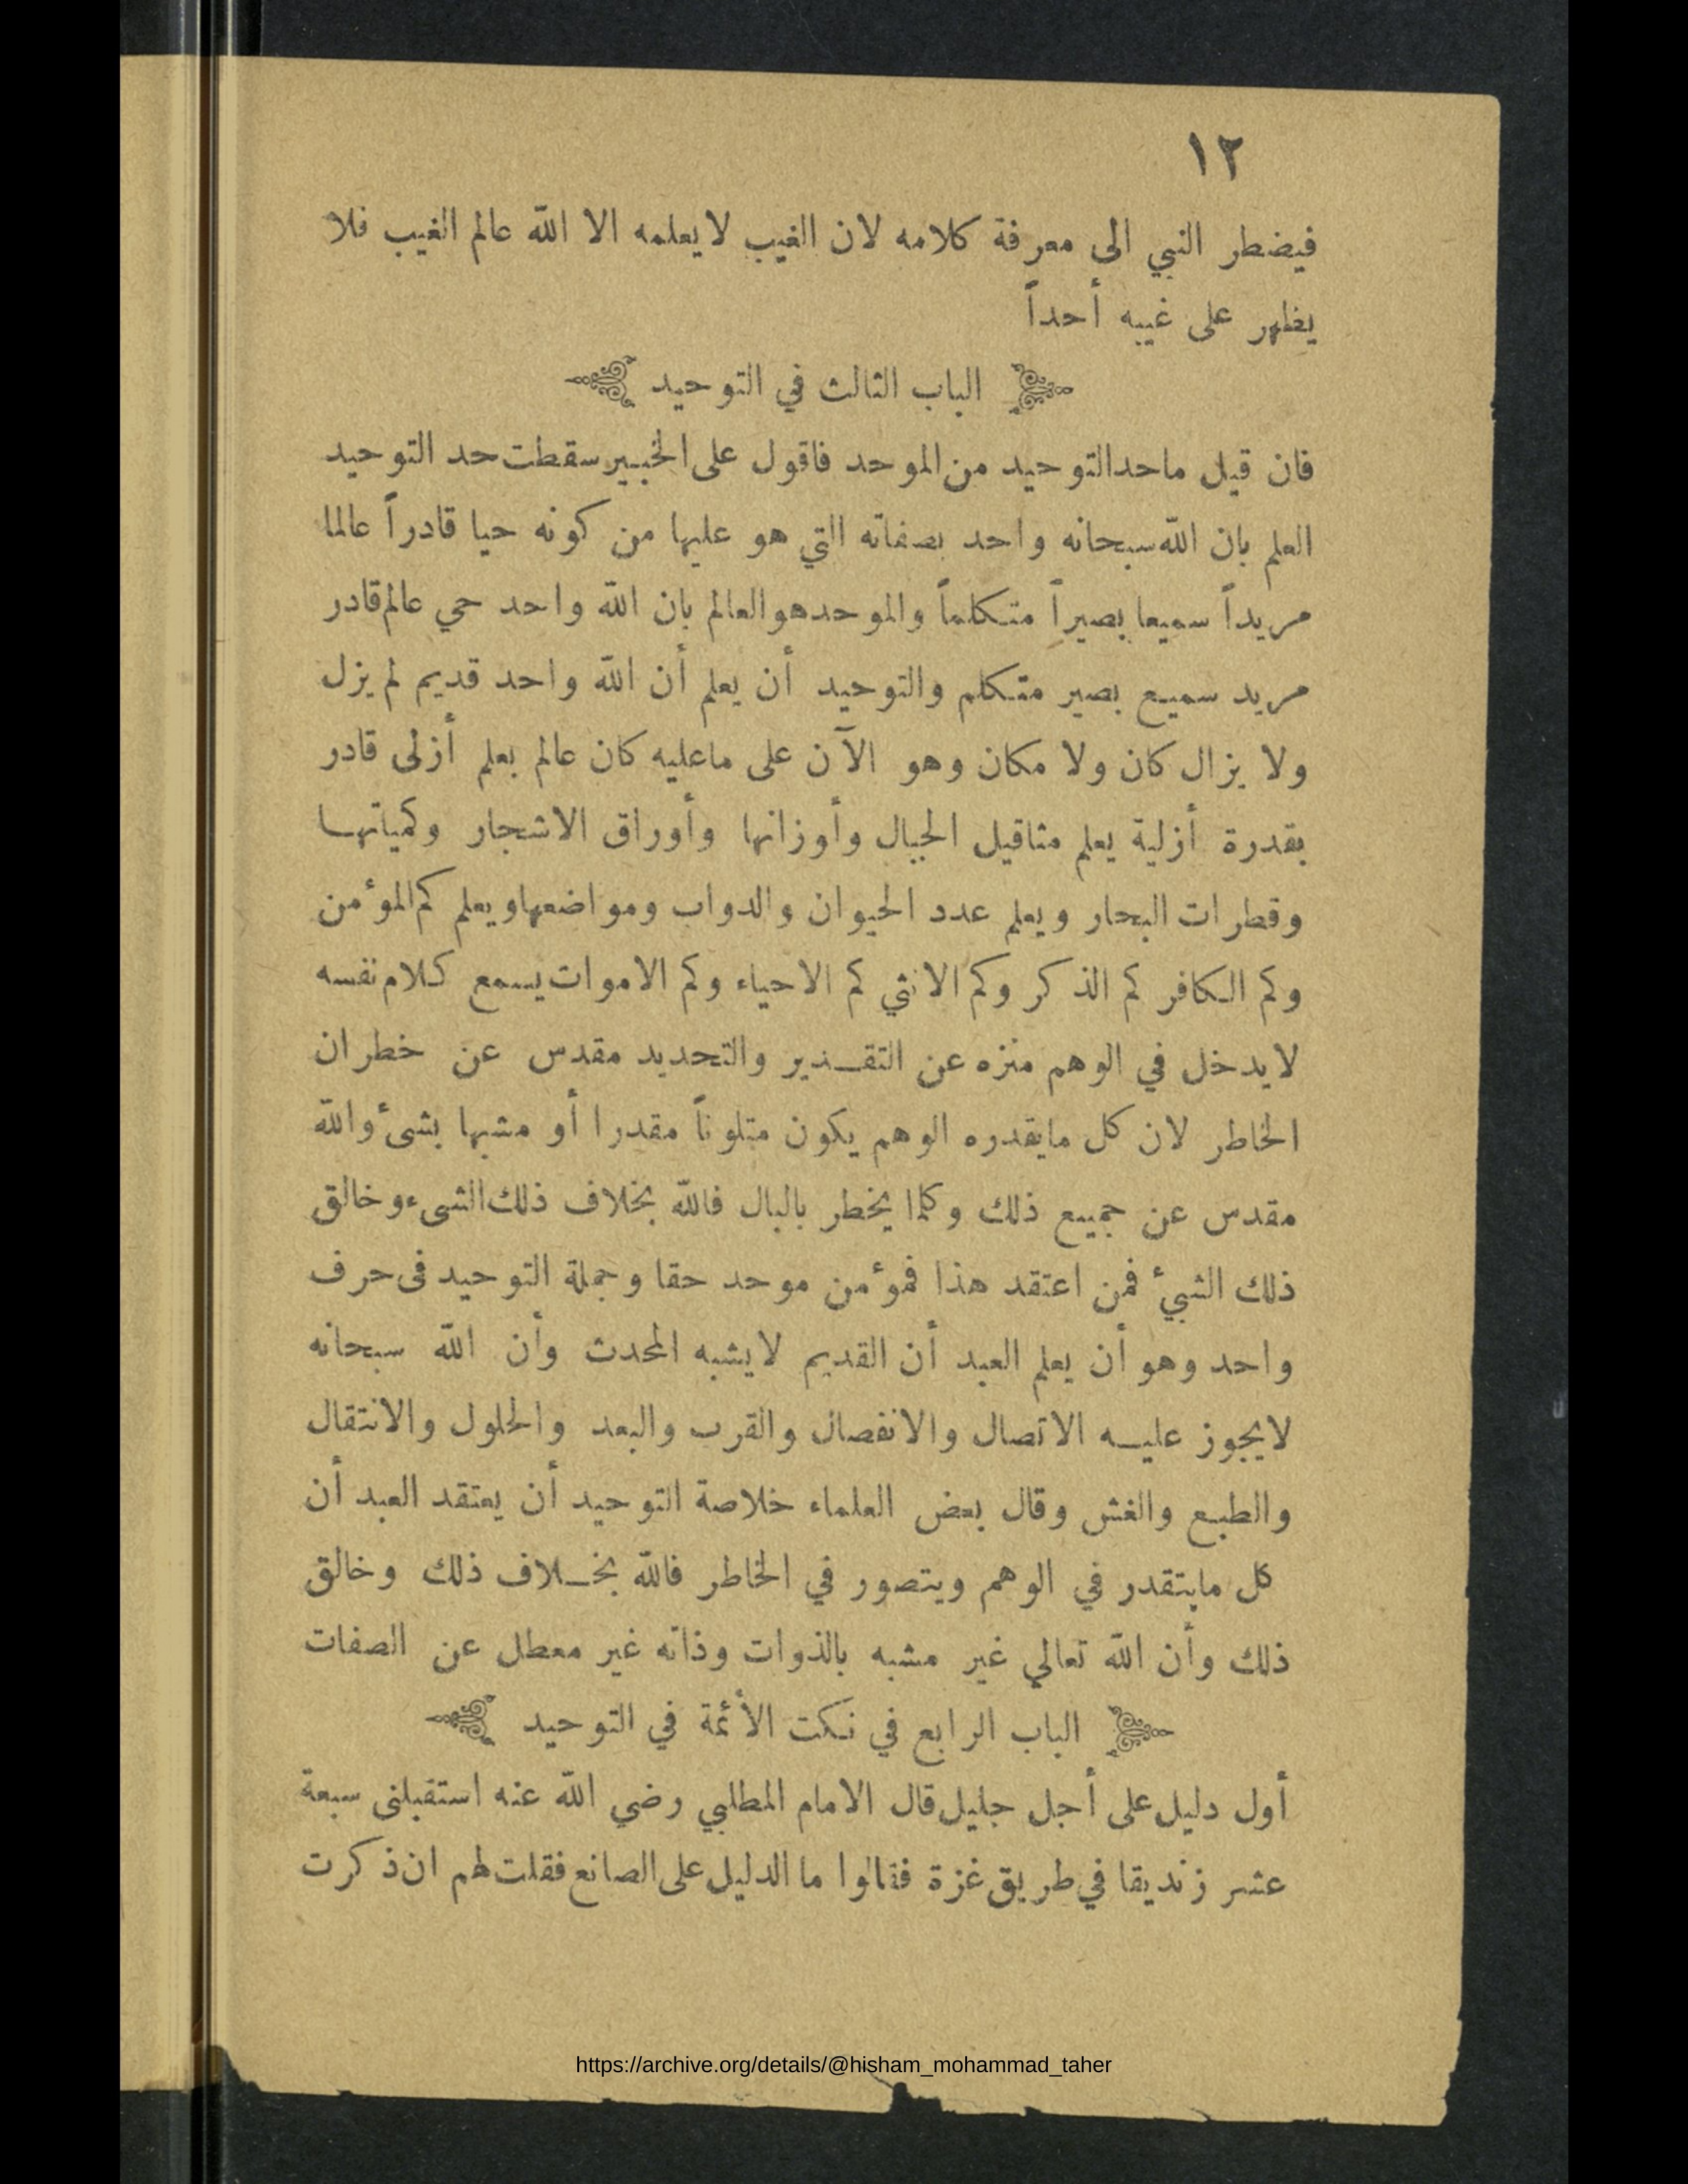 ١٢
فيضطر النبي الى معرفة كلامه لان الغيب لايعلمه الا الله عالم الغيب فلا
يظهر على غيبه أحداً
الباب الثالث في التوحيد
فان قيل ماحدالتوحيد من الموحد فاقول على الخبير سقطت حد التوحيد
العلم بان الله سبحانه واحد بصفاته التي هو عليها من كونه حيا قادراً عالما
مريداً سميعا بصيراً متكلماً والموحدهوالعالم بان الله واحد حي عالم قادر
مريد سميع بصير متكلم والتوحيد أن يعلم أن الله واحد قديم لم يزل
ولا يزال كان ولا مكان وهو الآن على ماعليه كان عالم بعلم أزلى قادر
بقدرة أزلية يعلم مثاقيل الجبال وأوزانها وأوراق الاشجار وكمياتها
وقطرات البحار ويعلم عدد الحيوان والدواب ومواضعها ويعلم كم المؤمن
وكم الكافر كم الذكر وكم الانثي كم الاحياء وكم الاموات يسمع كلام نفسه
لايدخل في الوهم منزه عن التقدير والتحديد مقدس عن خطران
الخاطر لان كل مايقدره الوهم يكون متلوناً مقدرا أو مشبها بشئ والله
مقدس عن جميع ذلك وكلما يخطر بالبال فالله بخلاف ذلك الشىء وخالق
ذلك الشيئ فمن اعتقد هذا فمؤمن موحد حقا وجملة التوحيد فى حرف
واحد وهو أن يعلم العبد أن القديم لايشبه المحدث وأن الله سبحانه
لايجوز عليه الاتصال والانفصال والقرب والبعد والحلول والانتقال
والطبع والغش وقال بعض العلماء خلاصة التوحيد أن يعتقد العبد أن
كل مايتقدر في الوهم ويتصور في الخاطر فالله بخلاف ذلك وخالق
ذلك وأن الله تعالي غير مشبه بالذوات وذاته غير معطل عن الصفات
الباب الرابع في نكت الأئمة في التوحيد
أول دليل على أجل جليل قال الامام المطلبي رضي الله عنه استقبلنى سبعة
عشر زنديقا في طريق غزة فقالوا ما الدليل على الصانع فقلت لهم ان ذكرت
https://archive.org/details/@hisham_mohammad_taher